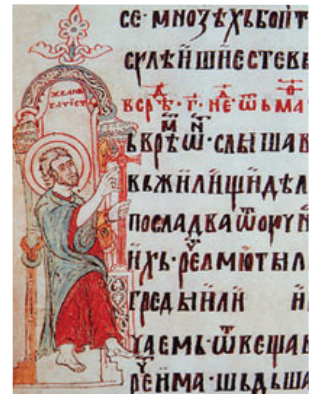 СЕ·МНОЗѢХЬБОПТ
СУЛѢИШИЕСТЕВЫ
ВСРѢ·Г·НЕ ѾЬМА
ЬВРѢѠ·СЛЫШАВ
ВЬЖИЛИЩИДѢЛ
ПОСЛАДВАѾОУЧН
ИХЬ·РЕ ТЫЛ
ГРЕДЫИИЛИ И
ЧАЕМЬ·ѾВЕЩАВ
РЕИМА·ШЬДЬША